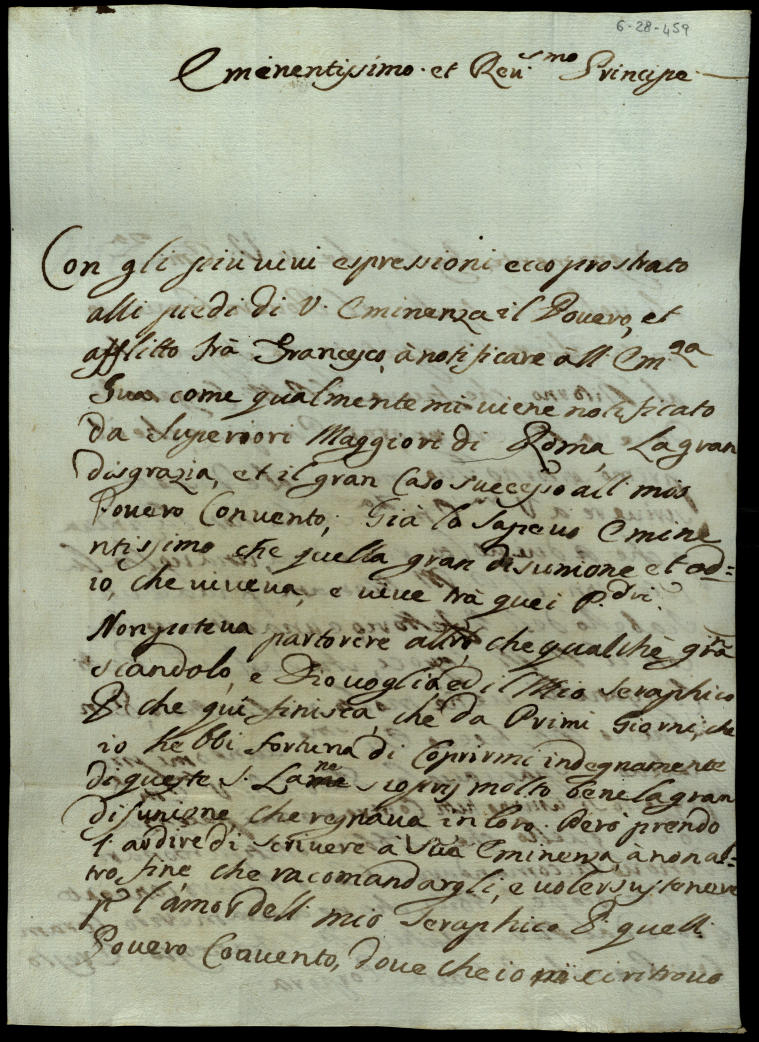 6-28-459
Eminentissimo et Reu.smo Principe
Con gli piu uiui espressioni ecco prostrato
alli piedi di V. Eminenza il Pouero, et
afflitto frà Francesco, à notificare àll Em.za
Sua come qualmente mi uiene notificato
da Superiori Maggiori di Roma, La gran
disgrazia, et il gran Caso successo all mio
Pouero Conuento, Già lo sapeuo Emine
ntissimo che quella gran disunione et od=
io, che uiueua, e uiue trà quei P.dri.
Non poteua partorire altro che qualche grã
scandolo, e Dio uoglia, ed il Mio Seraphico
P che qui finisca, che da Primi Giorni, che
io hebbi fortuna di Coprirmi indegnamente
di queste S. Lane scoprij molto bene la gran
disunione, che regnaua in loro. Però prendo
l'ardire di scriuere à Sua Eminenza, à non al=
tro, fine che racomandargli, e uoler sustenere
p l'amor dell mio Seraphico P. quell
Pouero Conuento, doue che io mi ci ritrouo